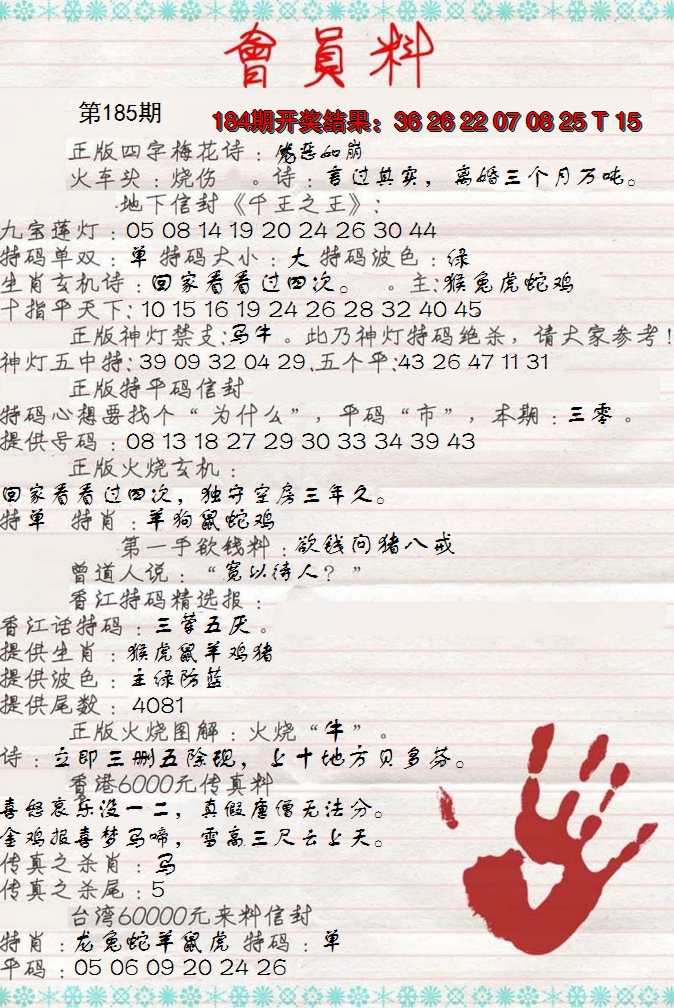 會員料
第185期
184期开奖结果：36 26 22 07 08 25 T 15
正版四字梅花诗： 恶如崩
火车头：烧伤 。诗：言过其实，离婚三个月万吨。
地下信封《千王之王》：
九宝莲灯：05 08 14 19 20 24 26 30 44
特码单双：单 特码大小：大 特码波色：绿
生肖玄机诗：回家看看过四次。 。主：猴兔虎蛇鸡
十指平天下：10 15 16 19 24 26 28 32 40 45
正版神灯禁支：马牛。此乃神灯特码绝杀，请大家参考！
神灯五中特：39 09 32 04 29.五个平：43 26 47 11 31
正版特平码信封
特码心想要找个“为什么”，平码“市”，本期：三零。
提供号码：08 13 18 27 29 30 33 34 39 43
正版火烧玄机：
回家看看过四次，独守空房三年久。
特单 特肖：羊狗鼠蛇鸡
第一手欲钱料：欲钱问猪八戒
曾道人说：“宽以待人？”
香江特码精选报：
香江话特码：三荤五厌。
提供生肖：猴虎鼠羊鸡猪
提供波色：主绿防蓝
提供尾数：4081
正版火烧图解：火烧“牛”。
诗：立即三删五除现，上十地方贝多芬。
香港6000元传真料
喜怒哀乐没一二，真假唐僧无法分。
金鸡报喜梦马啼，雪高三尺去上天。
传真之杀肖：马
传真之杀尾：5
台湾60000元来料信封
特肖：龙兔蛇羊鼠虎 特码：单
平码：05 06 09 20 24 26